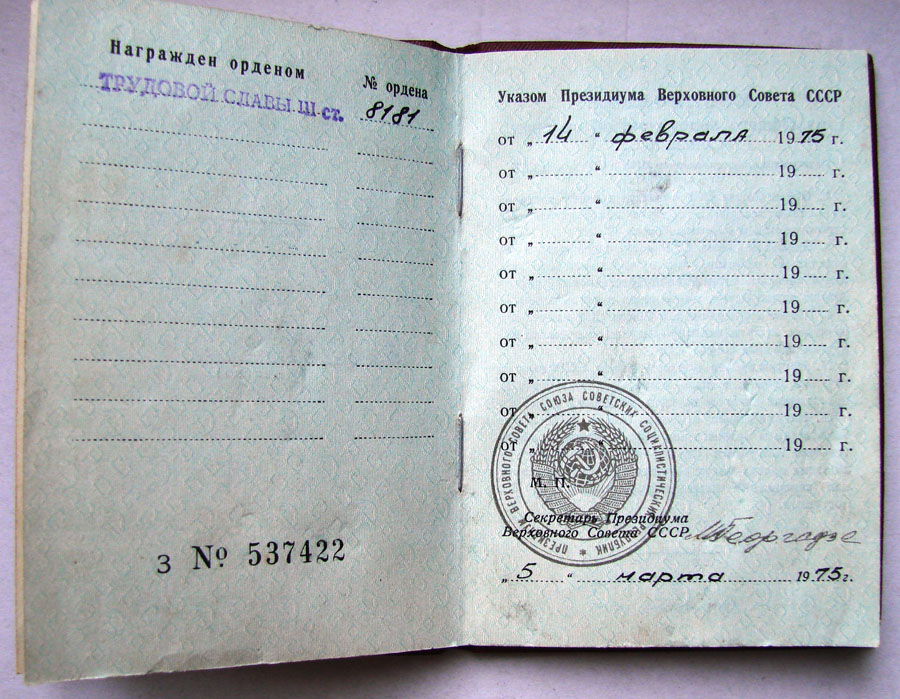 Награжден орденом
№ ордена
ТРУДОВОЙ СЛАВЫ III ст.
8181
З № 537422
Указом Президиума Верховного Совета СССР
от „ 14 “ февраля 1975 г.
от „ “ 19 г.
от „ “ 19 г.
от „ “ 19 г.
от „ “ 19 г.
от „ “ 19 г.
от „ “ 19 г.
от „ “ 19 г.
от „ “ 19 г.
от „ “ 19 г.
ПРЕЗИДИУМ ВЕРХОВНОГО СОВЕТА СОЮЗА СОВЕТСКИХ СОЦИАЛИСТИЧЕСКИХ РЕСПУБЛИК
М. П.
Секретарь Президиума
Верховного Совета СССР
МГеоргадзе
„ 5 “ марта 1975 г.